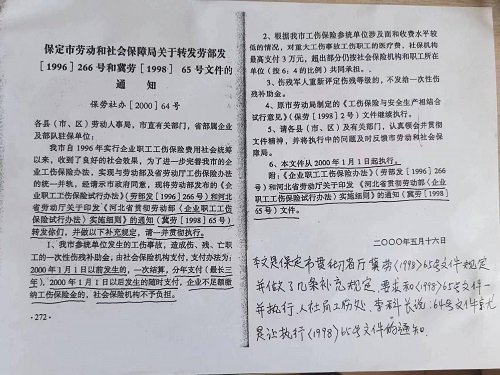 保定市劳动和社会保障局关于转发劳部发
［1996］266 号和冀劳［1998］ 65 号文件的
通 知
保劳社办［2000］64 号
各县（市、区）劳动人事局，市直有关部门，省部属企业
及部队驻保单位：
我市自 1996 年实行企业职工工伤保险费用社会统筹
以来，收到了良好的社会效果，为了进一步完善我市的企
业工伤保险办法，实现与劳动部及省劳动厅工伤保险办法
的统一并轨，经请示市政府同意，现将劳动部发布的《企
业职工工伤保险试行办法》（劳部发［1996］266 号）和河北
省劳动厅关于印发《河北省贯彻劳动部〈企业职工工伤保
险试行办法〉实施细则》的通知（冀劳［1998］65 号）
转发你们，并做以下补充规定，请一并贯彻执行。
1、我市参统单位发生的工伤事故，造成伤、残、亡职
工的一次性伤残补助金，由社会保险机构支付，支付办法为：
2000 年 1 月 1 日以前发生的，一次结算，分年支付（最长三
年），2000 年 1 月 1 日以后发生的随时支付，企业不足额缴
纳工伤保险金的，社会保险机构不予负担。
·272·
2、根据我市工伤保险参统单位涉及面和收费水平较
低的情况，对重大工伤事故工伤职工的医疗费，社保机构
最高支付 3 万元，超出部分仍按社会保险机构和职工所在
单位（按 6：4 的比例）共同承担。
3、伤残军人重新评定伤残等级的，不发给一次性伤
残补助金。
4、原市劳动局制定的《工伤保险与安全生产相结合
试行意见》（保劳［1999］2 号）文件继续执行。
5、请各县（市、区）及有关部门，认真领会并贯彻
文件精神，并将执行中的问题及时反馈市劳动和社会保障
局。
6、本文件从 2000 年 1 月 1 日起执行。
附：《企业职工工伤保险试行办法》（劳部发［1996］266
号）和河北省劳动厅关于印发《河北省贯彻劳动部〈企业职
工工伤保险试行办法〉实施细则》的通知（冀劳［1998］
65 号）文件。
二〇〇〇年五月十六日
本文是保定市贯彻省厅冀劳(1998)65号文件规定
并做了几条补充规定，要求和(1998)65号文件一
并执行，人社局工伤处，李科长说：64号文件
是让执行(1998)65号文件的通知.